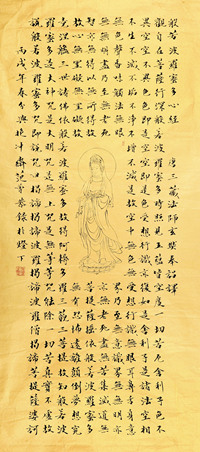 般若波羅蜜多心經 唐三藏法師玄奘奉詔譯
觀自在菩薩行深般若波羅蜜多時照見五蘊皆空度一切苦厄舍利子色不
異空空不異色色即是空空即是色受想行識亦復如是舍利子是諸法空相
不生不滅不垢不淨不增不減是故空中無色無受想行識無眼耳鼻舌身意
無色聲香味觸法無眼界乃至無意識界無無明亦
無無明盡乃至無老死亦無老死盡無苦集滅道無
智亦無得以無所得故菩提薩埵依般若波羅蜜多
故心無罣礙無罣礙故無有恐怖遠離顛倒夢想究
竟涅槃三世諸佛依般若波羅蜜多故得阿耨多羅三藐三菩提故知般若波
羅蜜多是大神咒是大明咒是無上咒是無等等咒能除一切苦真實不虛故
說般若波羅蜜多咒即說咒曰揭諦揭諦波羅揭諦波羅僧揭諦菩提薩婆訶
丙戌年春分抱沖齋范曾恭錄於燈下